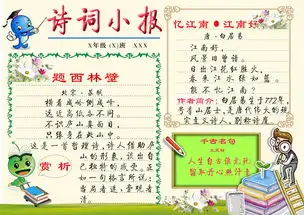 诗词小报
X年级 (X)班 XXX
题西林壁
北宋·苏轼
横看成岭侧成峰，
远近高低各不同。
不识庐山真面目，
只缘身在此山中。
赏析
这是一首哲理诗，诗人借助庐
山的形象，
独特的感受。正
如一句格言所说：
当局者迷，旁观者
清。
忆江南●江南好
唐·白居易
江南好，
风景旧曾谙。
日出江花红胜火，
春来江水绿如蓝。
能不忆江南？
作者简介：白居易生于772年，
号香山居士，是唐代伟大的现
实主义诗人，
千古名句
文天祥
人生自古谁无死，
留取丹心照汗青。